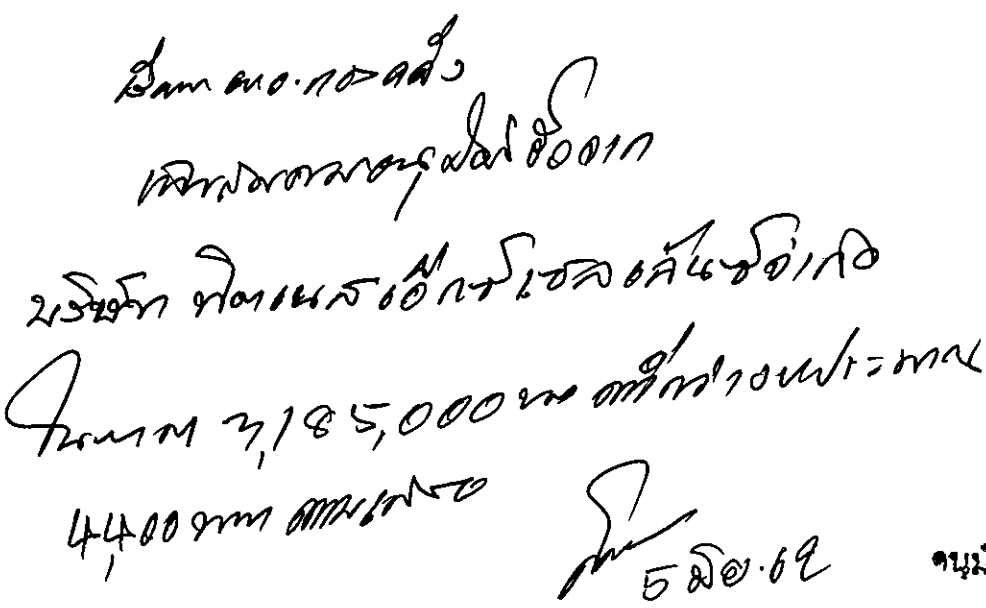 เรียน ผอ.กองคลัง
เห็นสมควรอนุมัติซื้อจาก
บริษัท ฟิตเนส เอ็กซ์เซลเล้นซ์ จำกัด
ในราคา 3,185,000 บาท ต่ำกว่างบประมาณ
4,400 บาท ตามเสนอ
5 มิย. 62